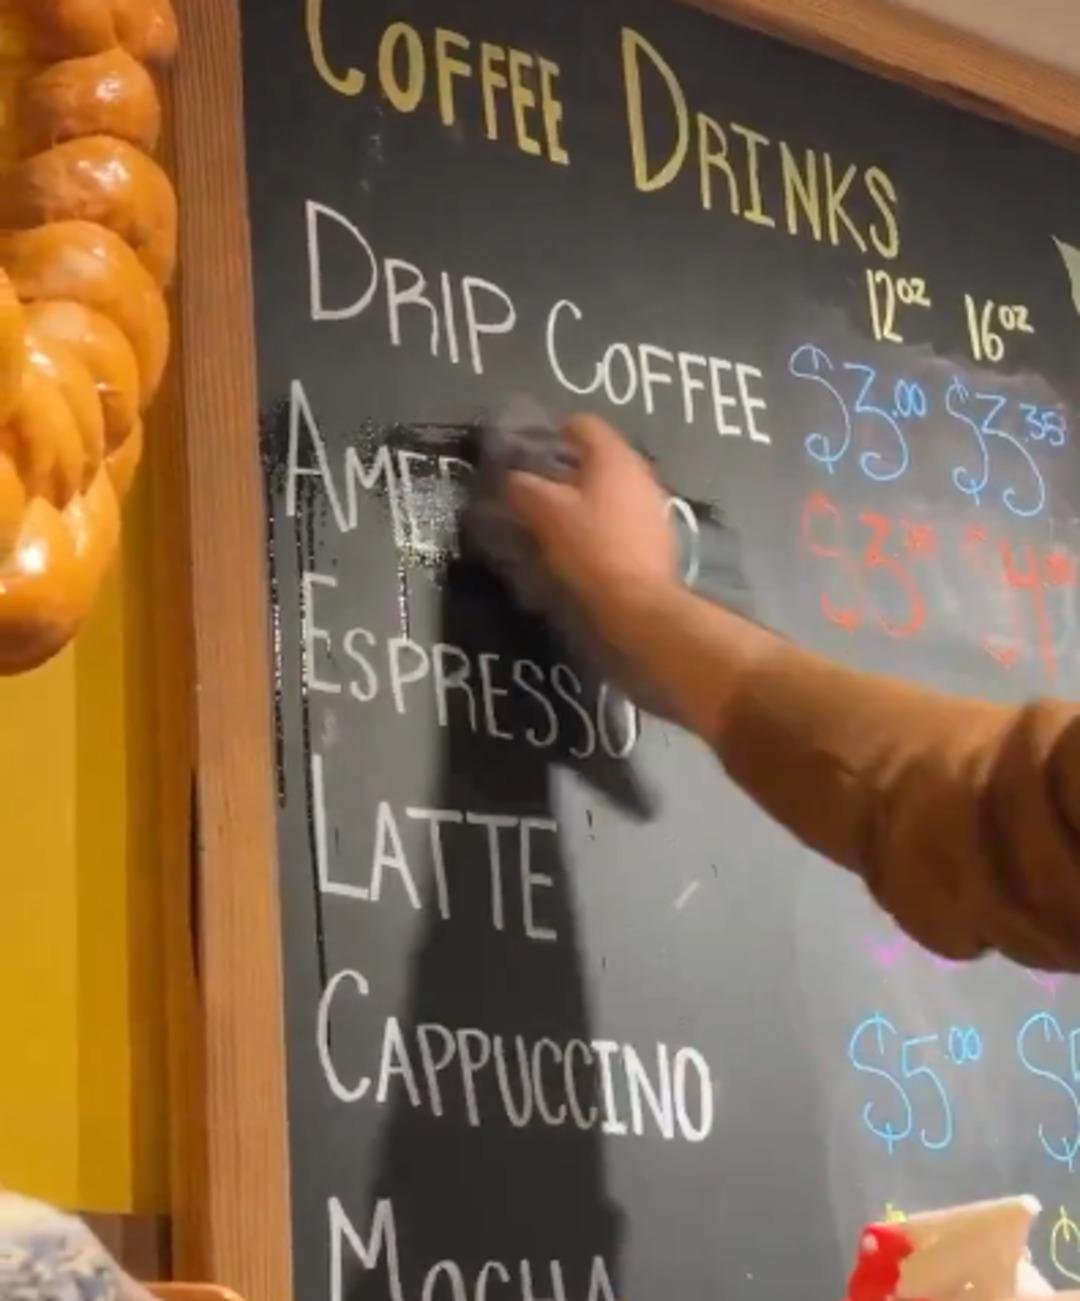 COFFEE DRINKS
12oz 16oz
DRIP COFFEE $3.00 $3.35
ESPRESSO
LATTE
CAPPUCCINO $5.00
MOCHA